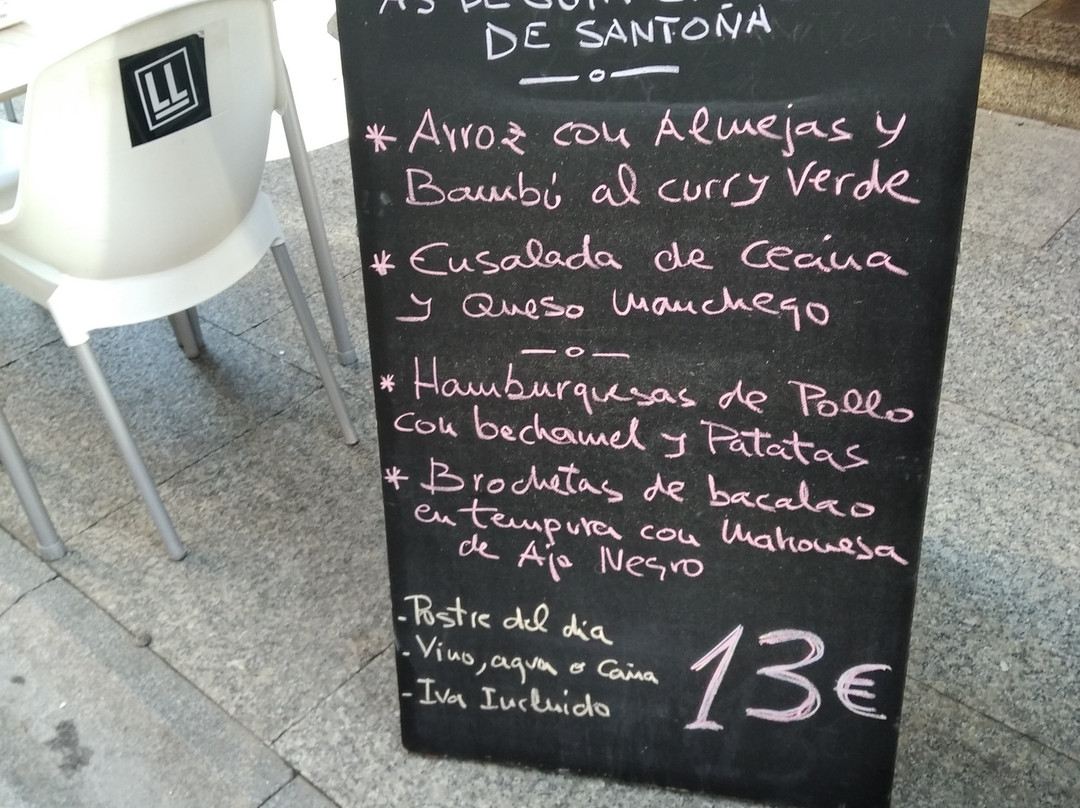 DE SANTOÑA
* Arroz con Almejas y
Bambú al curry Verde
* Ensalada de Cecina
y Queso Manchego
* Hamburguesas de Pollo
con bechamel y Patatas
* Brochetas de bacalao
en tempura con Mahonesa
de Ajo Negro
- Postre del dia
- Vino, agua o Caña
- Iva Incluido
13€
LL